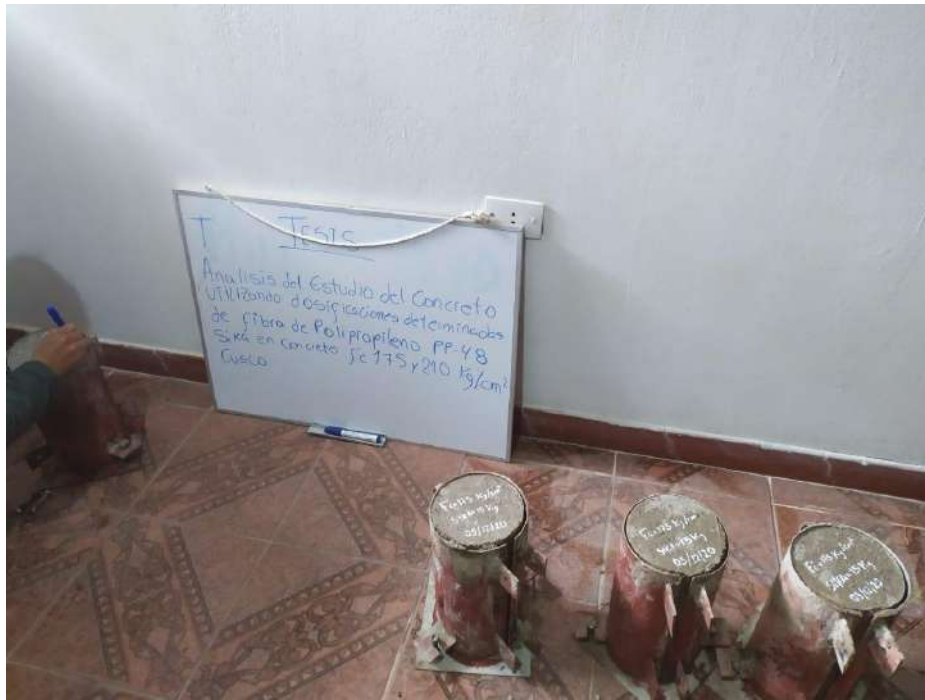 T TESIS
Analisis del Estudio del Concreto
Utilizando dosificaciones determinadas
de fibra de Polipropileno PP-48
Sika en concreto f'c 175 y 210 Kg/cm²
Cusco
F'c=175 Kg/cm²
Sika=15 Kg
05/12/20
F'c=175 Kg/cm²
05/12/20
F'c=175 Kg/cm²
Sika=15 Kg